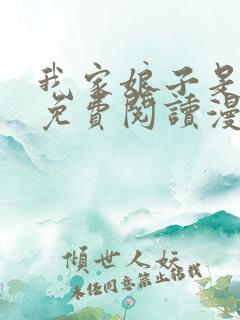 我家娘子是
免費閱讀漫
傾世人妖
未經同意禁止轉載